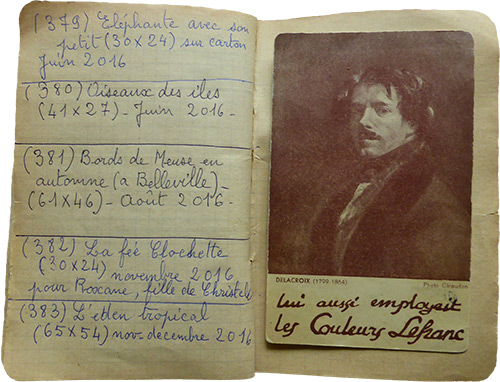 (379) Eléphante avec son
petit (30x24) sur carton
Juin 2016
(380) Oiseaux des iles
(41x27) - Juin 2016 -
(381) Bords de Meuse en
automne (a Belleville) -
(61x46) - Août 2016 -
(382) La fée Clochette
(30x24) novembre 2016
pour Roxane, fille de Christelle
(383) L'eden tropical
(65x54) nov-decembre 2016
DELACROIX (1799-1864)
Photo Giraudon
lui aussi employait
les Couleurs Lefranc